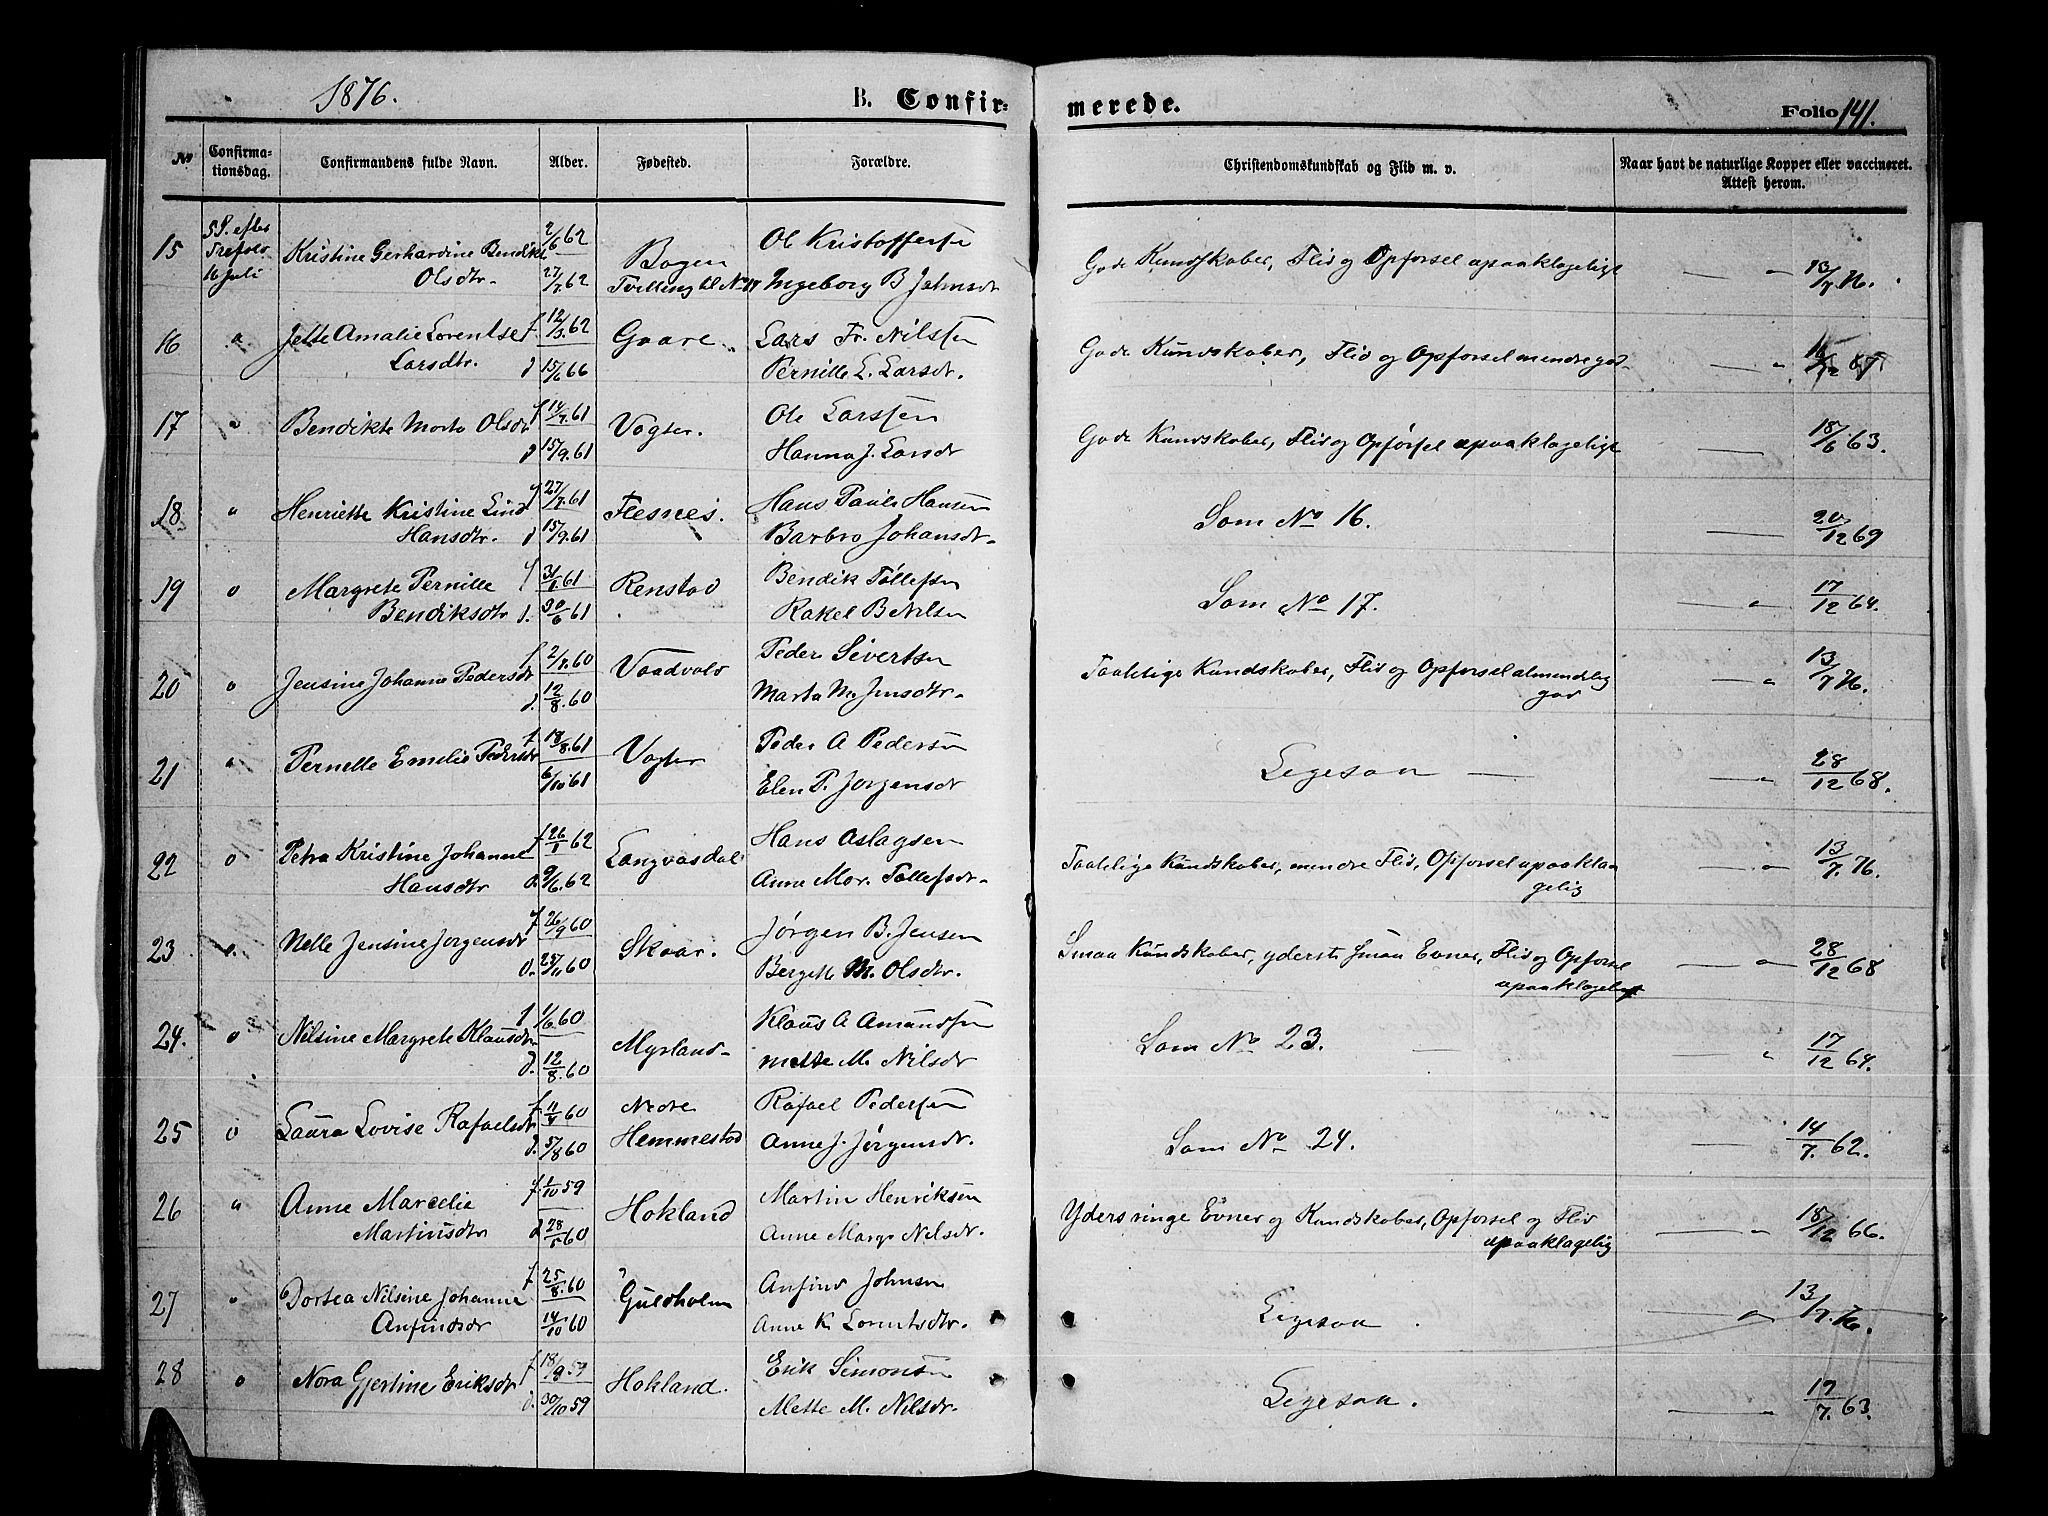 1876. B. Confir-
merede. Folio 141.
No Confirma-
tionsdag. Confirmandens fulde Navn. Alder. Fødested. Forældre. Christendomskundskab og Flid m. v. Naar havt de naturlige Kopper eller vaccineret.
Attest herom.
15 5 S. efter
Trefold
16 Juli Kristine Gerhardine Bendikte
Olsdtr. 2/6 62
27/7 62 Bogen
Tvilling til No 14 Ol Kristoffersen
Ingeborg B Johnsdr Gode Kundskaber, Flid og Opforsel upaaklagelige — " 13/7 76.
16 " Jette Amalie Lorentse
Larsdtr. f. 12/3 62
d 15/6 66 Gaare. Lars Fr. Nilsen
Pernille L. Larsdr. Gode Kundskaber, Flid og Opforsel mindre god — "
17 " Bendikte Marta Olsdr f 14/7 61
d 15/9 61 Vogter. Ole Larssen
Hanna J. Larsdr Gode Kundskaber, Flid og Opførsel upaaklagelige — 18/6 63.
18. " Henriette Kristine Lind
Hansdtr. f 27/7 61
d 15/9 61 Flesnes. Hans Paul Hansen
Barbro Johansdr. Som No 16. — 20/12 69
19 " Margrete Pernille
Bendiksdtr f 31/1 61
d. 30/6 61 Renstad Bendik Tollefsen
Rakel B Nilsen Som No 17. — " 17/12 64.
20 " Jensine Johanne Pedersdr f 2/7 60
d. 12/8 60 Vaadvold Peder Sivertsen
Marta M Jensdtr. Taalelige Kundskaber, Flid og Opforsel almindelig
god — " 13/7 76.
21 " Pernelle Emelie Pedersdr f 18/8 61
6/10 61 Vogter Peder A Pedersen
Elen P. Jorgensdr Ligesaa — — " 28/12 68.
22 " Petra Kristine Johanne
Hansdtr f 26/1 62
d. 9/6 62 Langvasdal Hans Aslagsen
Anne Mar. Tollefsdr. Taalelige Kundskaber, mindre Flid, Opforsel upaakla-
gelig — " 13/7 76.
23 " Nelle Jensine Jorgensdr f 26/9 60
d. 25/11 60 Skaar. Jørgen B. Jensen
Bergette M. Olsdtr. Smaa Kundskaber, yderst smaa Evner, Flid og Opforsel
upaaklagelig — " 28/12 68
24. " Nilsine Margrete Klausdtr f 1/6 60
d. 12/8 60 Myrland Klaus A Amundsen
Mette M. Nilsdr Som No 23. — — " 17/12 64.
25 " Laura Lovise Rafaelsdr f 11/4 60
d. 5/8 60 Nedre
Hemmestad Rafael Pedersen
Anne J. Jørgensdr. Som No 24. — " 14/7. 62.
26 " Anne Marcelie
Martinusdtr f. 1/10 59
d 28/5 60 Hokland Martin Henriksen
Anne Margr Nilsdr. Yders ringe Evner og Kundskaber, Opforsel og Flid
upaaklagelig — " 18/12 66.
27 " Dortea Nilsine Johanne
Anfindsdr f 25/8 60
14/10 60 Guldholm Anfind Johnsen
Anne K Lorentsdtr. Ligesaa. — " 13/7. 76.
28 " Nora Gjertine Eriksdtr f. 18/8 59
d. 30/10 59 Hokland. Erik Simonsen
Mette M. Nilsdr. Ligesaa. — " 19/7. 63.